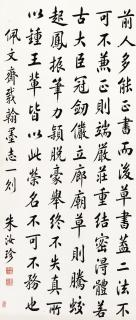 前人多能正書而後草書蓋二法不
可不兼正則端嚴莊重結密得體若
古大臣冠劍儼立廊廟草則騰蛟
起鳳振筆力穎脫豪舉終不失真所
以鍾王輩皆以此榮名不可不務也
佩文齋載翰墨志一則
朱汝珍